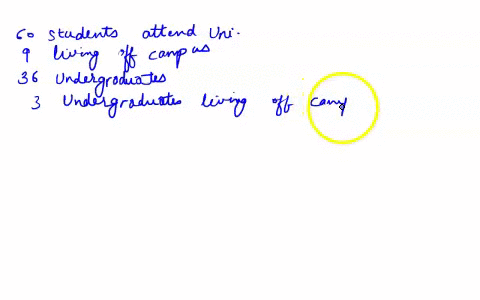 60 students attend Uni.
9 living off campus
36 Undergraduates
3 Undergraduates living off camp